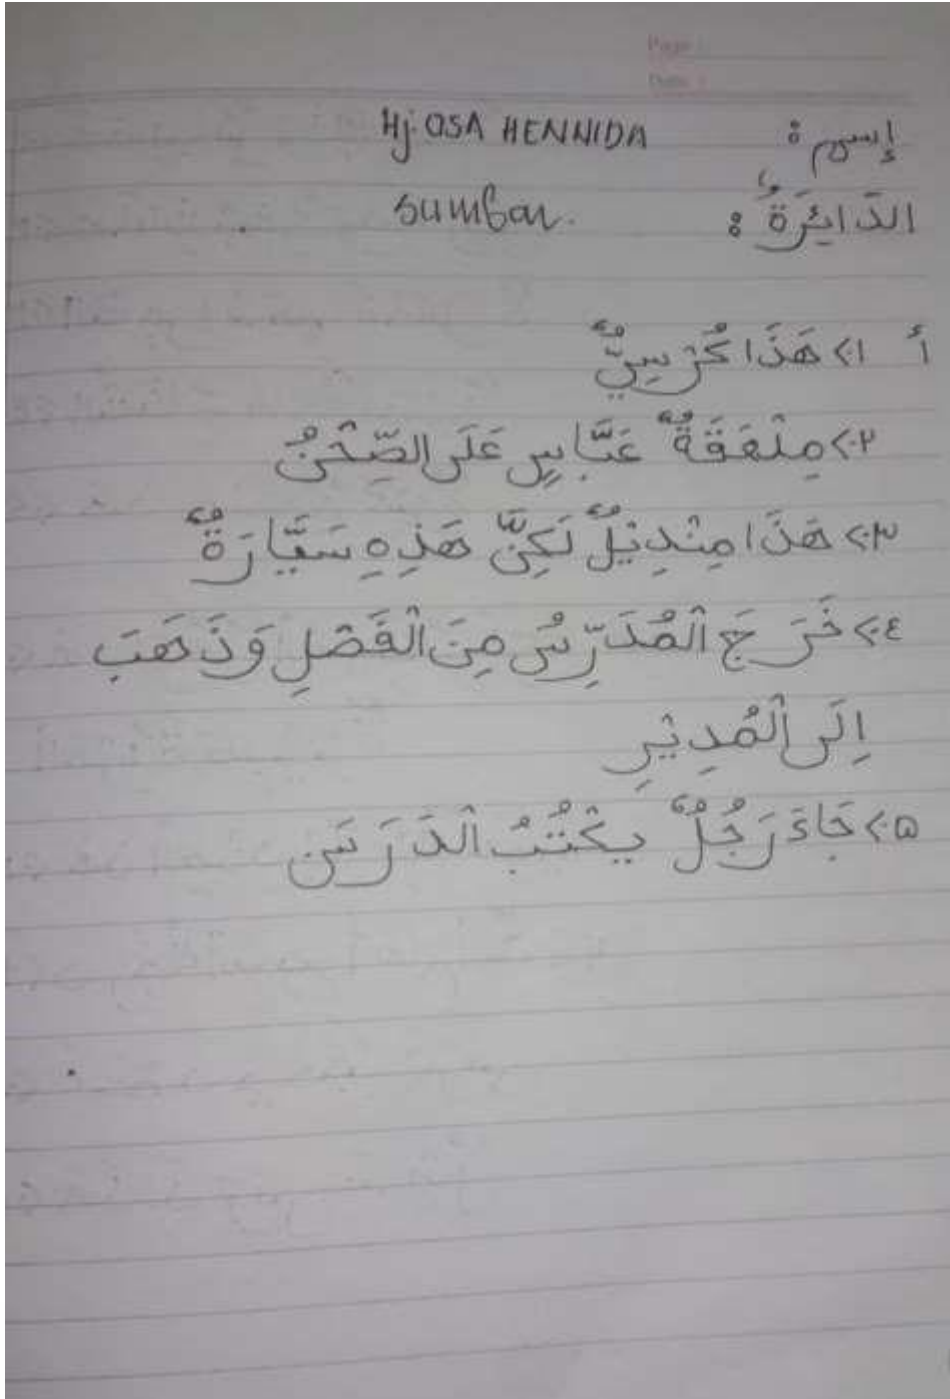 Page :
Date :
إسم : Hj. OSA HENNIDA
الدَائِرَةُ : Sumbar.
أ ١. هَذَا كُرْسِيٌّ
٢. مِلْعَقَةٌ عَبَّاسٍ عَلَى الصِّحْنُ
٣. هَذَا مِنْدِيْلٌ لَكِنَّ هَذِهِ سَيَّارَةٌ
٤. خَرَجَ الْمُدَرِّسُ مِنَ الْفَصْلِ وَذَهَبَ
اِلَى الْمُدِيْرِ
٥. جَاءَ رَجُلٌ يَكْتُبُ الْدَرَسَ